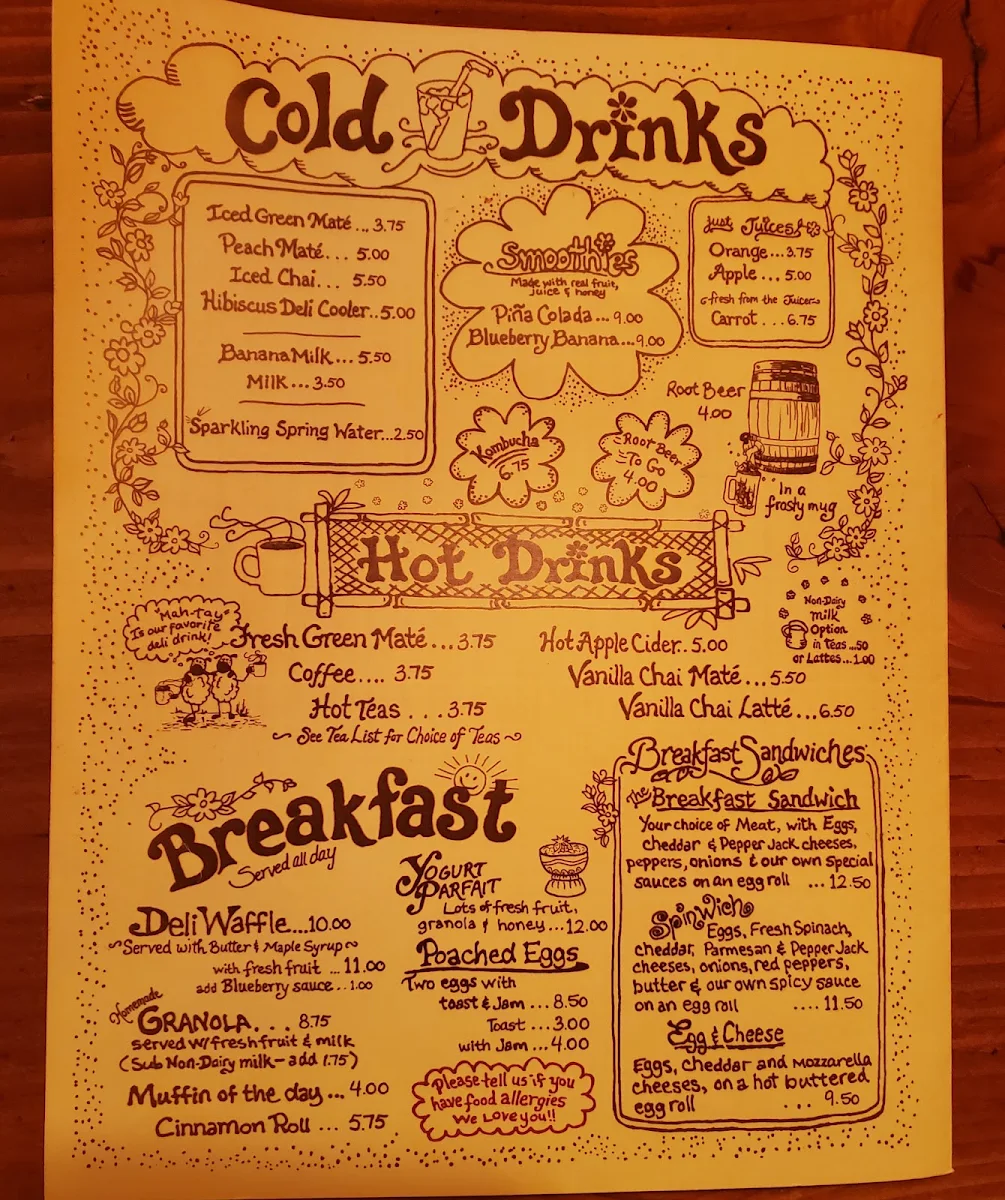 Cold Drinks
Iced Green Maté... 3.75
Peach Maté... 5.00
Iced Chai... 5.50
Hibiscus Deli Cooler..5.00
Banana Milk... 5.50
Milk... 3.50
Sparkling Spring Water...2.50
Smoothies
Made with real fruit,
juice & honey
Piña Colada... 9.00
Blueberry Banana...9.00
just Juices!
Orange...3.75
Apple... 5.00
fresh from the Juicer
Carrot... 6.75
Kombucha
6.75
Root Beer
To Go
4.00
Root Beer
4.00
In a
frosty mug
Hot Drinks
"Mah-Tay"
Is our favorite
deli drink!
Fresh Green Maté...3.75
Coffee.... 3.75
Hot Teas...3.75
~ See Tea List for Choice of Teas ~
Hot Apple Cider..5.00
Vanilla Chai Maté...5.50
Vanilla Chai Latté...6.50
Non-Dairy
Milk
Option
in Teas...50
or Lattes...1.00
Breakfast
Served all day
Deli Waffle....10.00
~Served with Butter & Maple Syrup~
with fresh fruit ...11.00
add Blueberry sauce..1.00
Homemade
GRANOLA... 8.75
served w/fresh fruit & milk
(Sub Non-Dairy milk-add 1.75)
Muffin of the day... 4.00
Cinnamon Roll ... 5.75
YOGURT
PARFAIT
Lots of fresh fruit,
granola & honey...12.00
Poached Eggs
Two eggs with
toast & Jam... 8.50
Toast...3.00
with Jam...4.00
Please tell us if you
have food allergies
We Love you!!
Breakfast Sandwiches
The Breakfast Sandwich
Your choice of Meat, with Eggs,
cheddar & Pepper Jack cheeses,
peppers, onions & our own special
sauces on an egg roll ...12.50
Spinwich
Eggs, Fresh Spinach,
cheddar, Parmesan & Pepper Jack
cheeses, onions, red peppers,
butter & our own spicy sauce
on an egg roll ....11.50
Egg & Cheese
Eggs, cheddar and Mozzarella
cheeses, on a hot buttered
egg roll ... 9.50